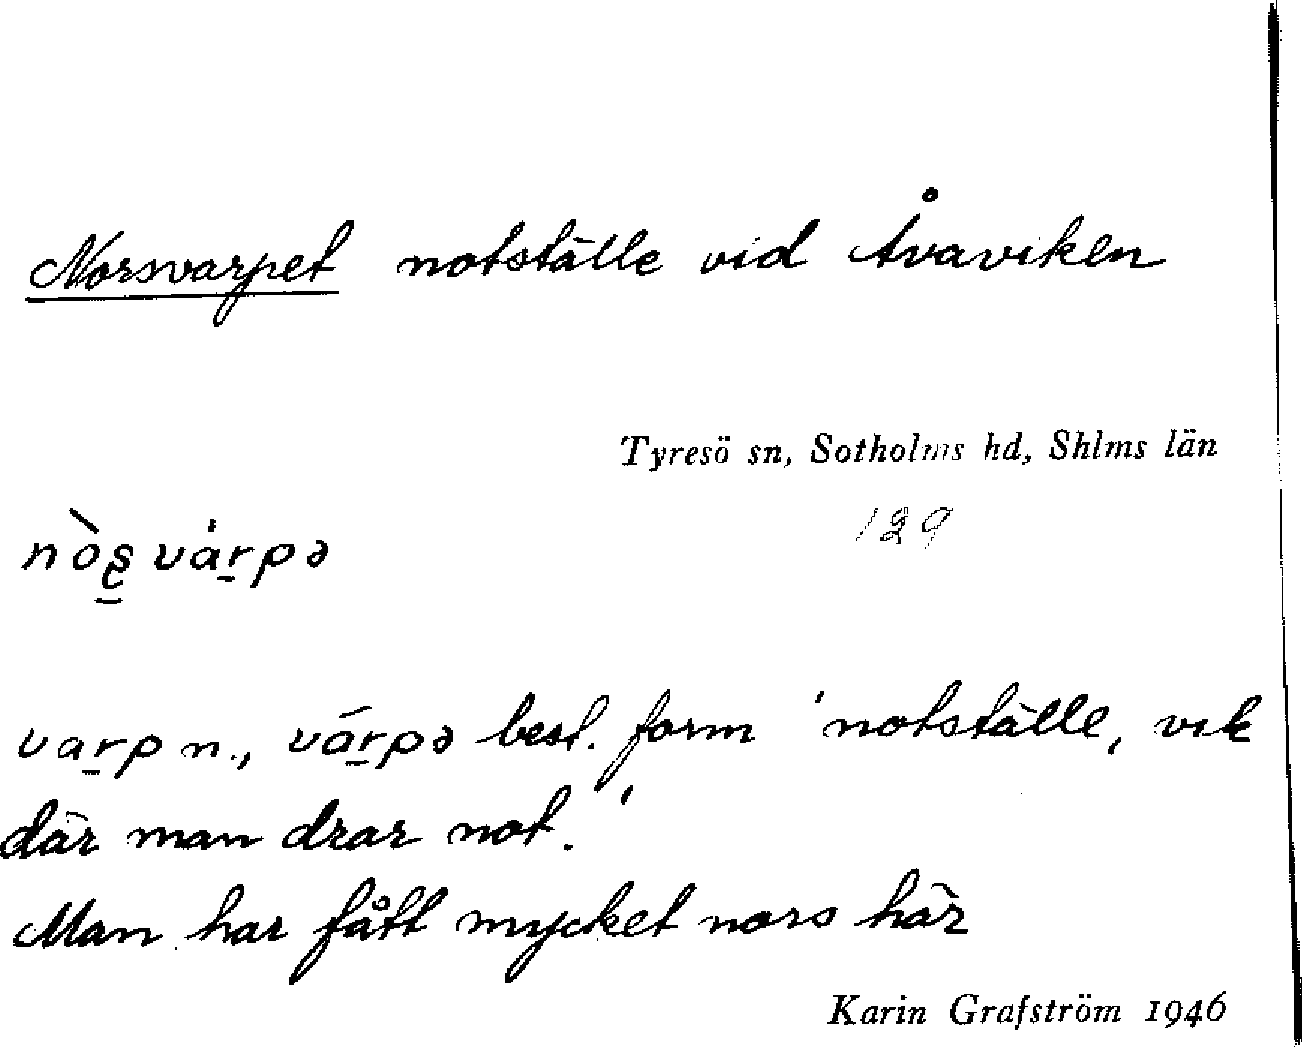 Norsvarpet notställe vid Åvaviken
Tyresö sn, Sotholms hd, Shlms län
129
nòs̱váṟpə
vaṟp n., váṟpə best. form 'notställe, vik
där man drar not.'
Man har fått mycket nors här
Karin Grafström 1946